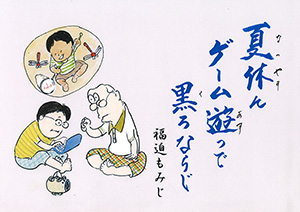 夏休ん
ゲーム遊っで
あす
黒ろならじ
く
福迫もみじ